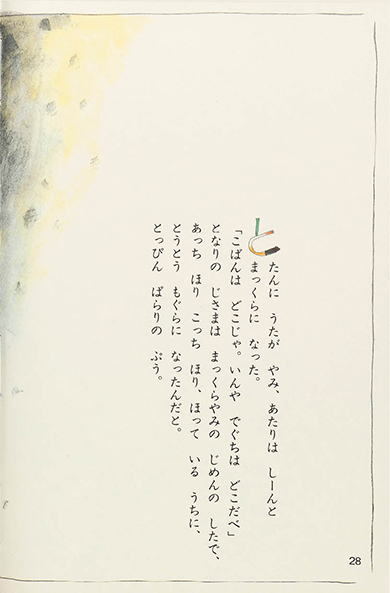 とたんに　うたが　やみ、あたりは　しーんと
まっくらに　なった。
「こばんは　どこじゃ。いんや　でぐちは　どこだべ」
となりの　じさまは　まっくらやみの　じめんの　したで、
あっち　ほり　こっち　ほり、ほって　いる　うちに、
とうとう　もぐらに　なったんだと。
とっぴん　ぱらりの　ぷう。
28